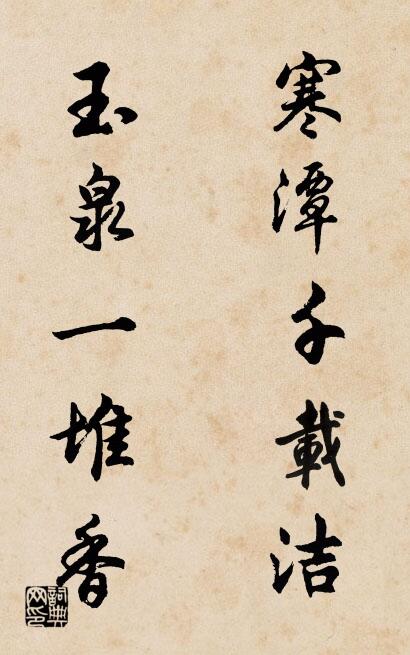 寒潭千載洁
玉泉一堆香
詞典网印